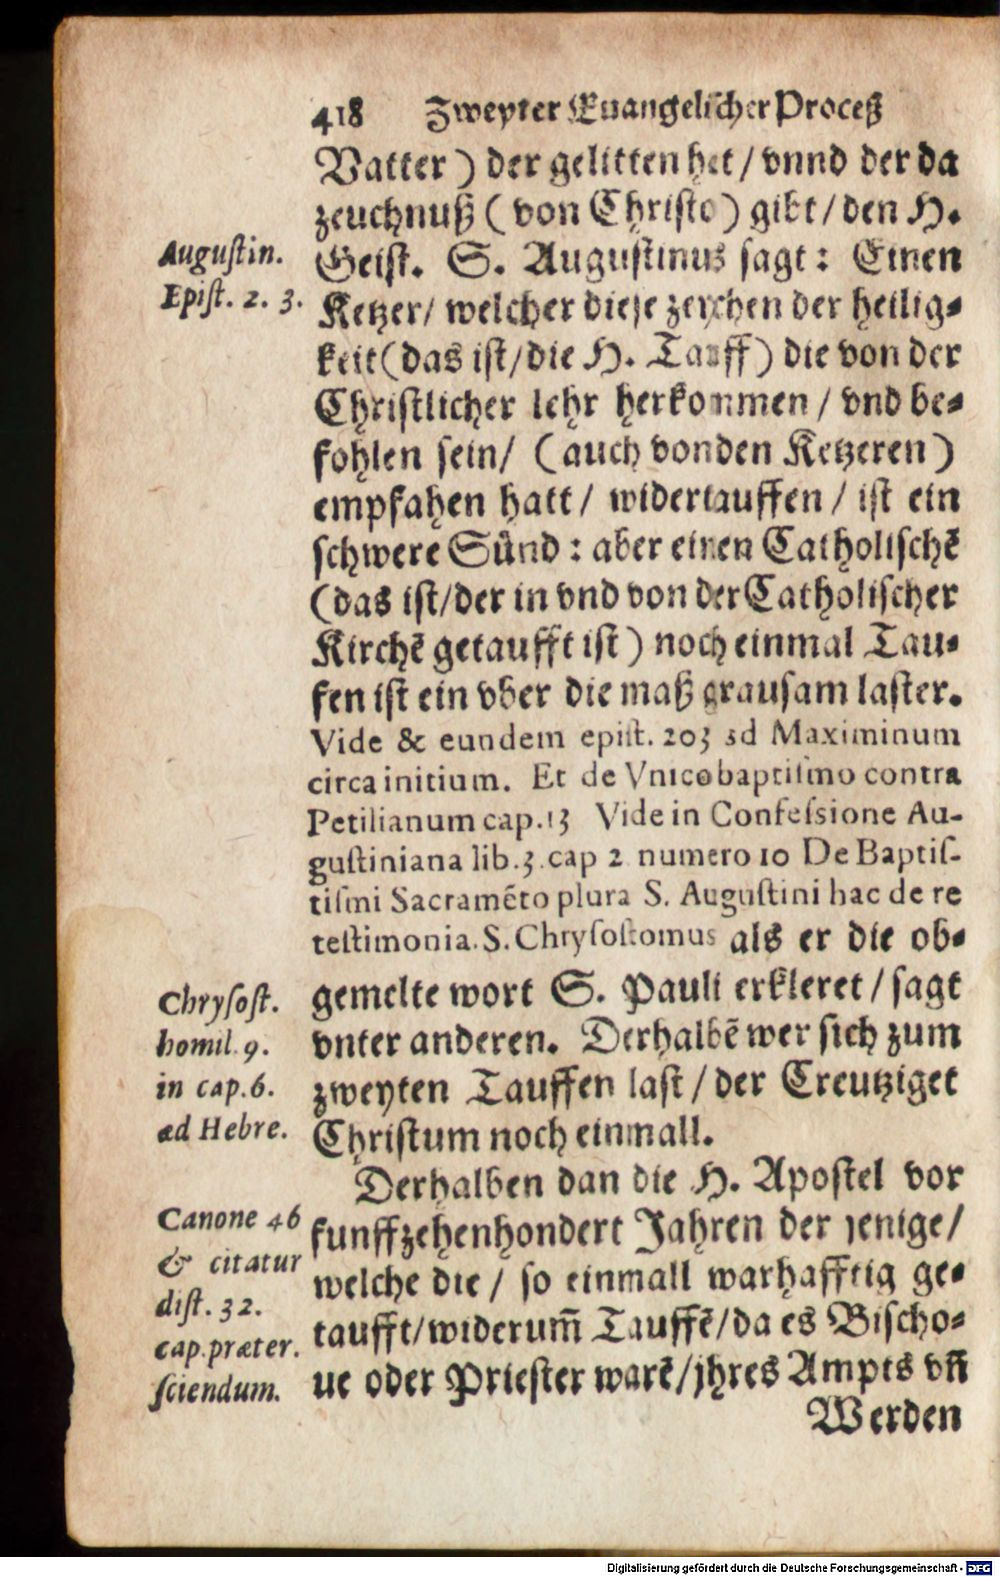 418 Zweyter Euangelischer Proceß
Vatter) der gelitten het / vnnd der da
zeuchnuß (von Christo) gibt / den H.
Augustin.
Epist. 2. 3.
Geist. S. Augustinus sagt: Einen
Ketzer / welcher diese zeichen der heilig-
keit (das ist / die H. Tauff) die von der
Christlicher lehr herkommen / vnd be-
fohlen sein / (auch von den Ketzeren)
empfahen hatt / widertauffen / ist ein
schwere Sünd: aber einen Catholischē
(das ist / der in vnd von der Catholischer
Kirchē getaufft ist) noch einmal Tau-
fen ist ein vber die maß grausam laster.
Vide & eundem epist. 203 ad Maximinum
circa initium. Et de Vnico baptismo contra
Petilianum cap. 13 Vide in Confessione Au-
gustiniana lib. 3. cap 2 numero 10 De Baptis-
tismi Sacramēto plura S. Augustini hac de re
testimonia. S. Chrysostomus als er die ob-
Chrysost.
homil. 9.
in cap. 6.
ad Hebre.
gemelte wort S. Pauli erkleret / sagt
vnter anderen. Derhalbē wer sich zum
zweyten Tauffen last / der Creutziget
Christum noch einmall.
Derhalben dan die H. Apostel vor
Canone 46
& citatur
dist. 32.
cap. præter.
sciendum.
funffzehenhondert Jahren der jenige /
welche die / so einmall warhafftig ge-
taufft / widerum̄ Tauffē / da es Bischo-
ue oder Priester warē / jhres Ampts vn̄
Werden
Digitalisierung gefördert durch die Deutsche Forschungsgemeinschaft - DFG